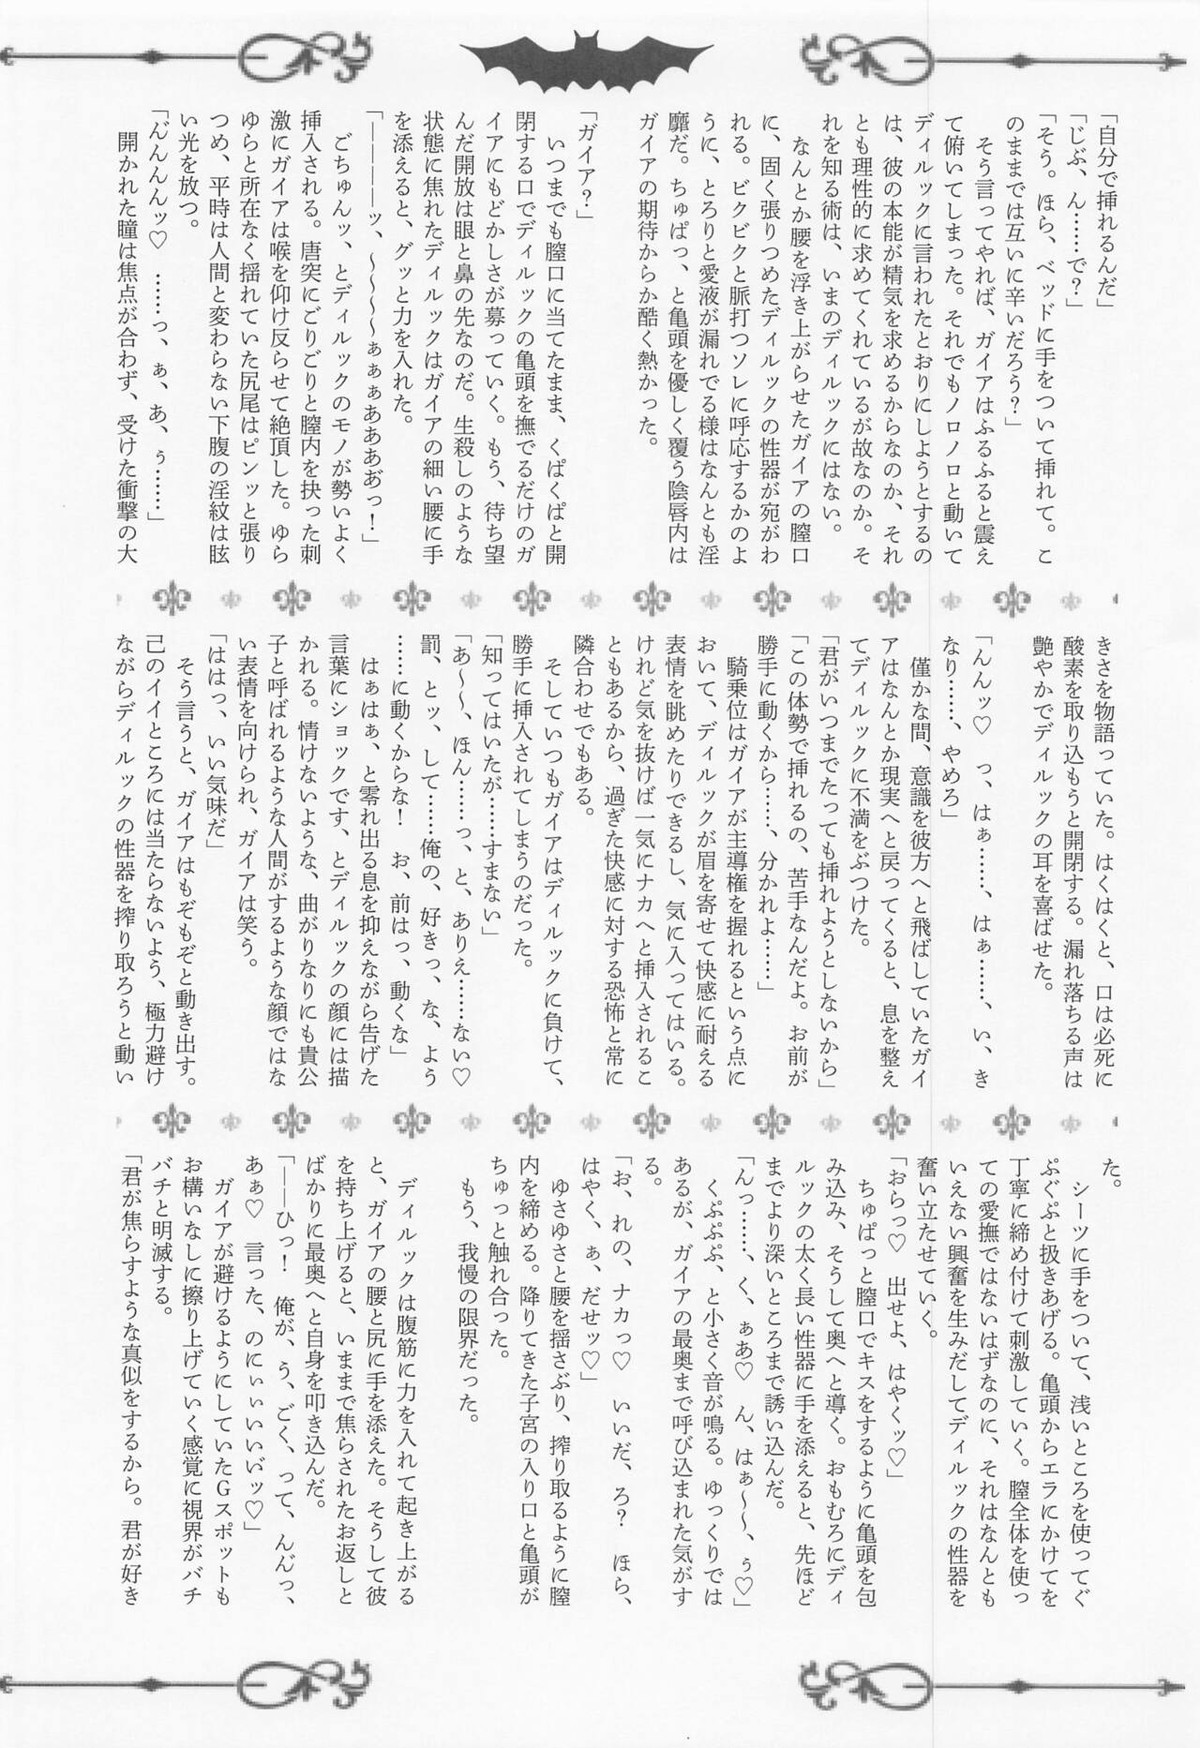 「自分で挿れるんだ」
「じぶ、ん……で？」
「そう。ほら、ベッドに手をついて挿れて。こ
のままでは互いに辛いだろう？」
そう言ってやれば、ガイアはふるふると震え
て俯いてしまった。それでもノロノロと動いて
ディルックに言われたとおりにしようとするの
は、彼の本能が精気を求めるからなのか、それ
とも理性的に求めてくれているが故なのか。そ
れを知る術は、いまのディルックにはない。
なんとか腰を浮き上がらせたガイアの膣口
に、固く張りつめたディルックの性器が宛がわ
れる。ビクビクと脈打つソレに呼応するかのよ
うに、とろりと愛液が漏れでる様はなんとも淫
靡だ。ちゅぱっ、と亀頭を優しく覆う陰唇内は
ガイアの期待からか酷く熱かった。
「ガイア？」
いつまでも膣口に当てたまま、くぱくぱと開
閉する口でディルックの亀頭を撫でるだけのガ
イアにもどかしさが募っていく。もう、待ち望
んだ開放は眼と鼻の先なのだ。生殺しのような
状態に焦れたディルックはガイアの細い腰に手
を添えると、グッと力を入れた。
「――――ッ、～～～～ぁぁぁあああぢっ！」
ごちゅんッ、とディルックのモノが勢いよく
挿入される。唐突にごりごりと膣内を抉った刺
激にガイアは喉を仰け反らせて絶頂した。ゆら
ゆらと所在なく揺れていた尻尾はピンッと張り
つめ、平時は人間と変わらない下腹の淫紋は眩
い光を放つ。
「ん゛んんんッ♡　……っ、ぁ、あ、ぅ……」
開かれた瞳は焦点が合わず、受けた衝撃の大
きさを物語っていた。はくはくと、口は必死に
酸素を取り込もうと開閉する。漏れ落ちる声は
艶やかでディルックの耳を喜ばせた。
「んんッ♡　っ、はぁ……、はぁ……、い、き
なり……、やめろ」
僅かな間、意識を彼方へと飛ばしていたガイ
アはなんとか現実へと戻ってくると、息を整え
てディルックに不満をぶつけた。
「君がいつまでたっても挿れようとしないから」
「この体勢で挿れるの、苦手なんだよ。お前が
勝手に動くから……、分かれよ……」
騎乗位はガイアが主導権を握れるという点に
おいて、ディルックが眉を寄せて快感に耐える
表情を眺めたりできるし、気に入ってはいる。
けれど気を抜けば一気にナカへと挿入されるこ
ともあるから、過ぎた快感に対する恐怖と常に
隣合わせでもある。
そしていつもガイアはディルックに負けて、
勝手に挿入されてしまうのだった。
「知ってはいたが……すまない」
「あ～～、ほん……っ、と、ありえ……ない♡
罰、とッ、して……俺の、好きっ、な、よう
……に動くからな！　お、前はっ、動くな」
はぁはぁ、と零れ出る息を抑えながら告げた
言葉にショックです、とディルックの顔には描
かれる。情けないような、曲がりなりにも貴公
子と呼ばれるような人間がするような顔ではな
い表情を向けられ、ガイアは笑う。
「ははっ、いい気味だ」
そう言うと、ガイアはもぞもぞと動き出す。
己のイイところには当たらないよう、極力避け
ながらディルックの性器を搾り取ろうと動い
た。
シーツに手をついて、浅いところを使ってぐ
ぷぐぷと扱きあげる。亀頭からエラにかけてを
丁寧に締め付けて刺激していく。膣全体を使っ
ての愛撫ではないはずなのに、それはなんとも
いえない興奮を生みだしてディルックの性器を
奮い立たせていく。
「おらっ♡　出せよ、はやくッ♡」
ちゅぱっと膣口でキスをするように亀頭を包
み込み、そうして奥へと導く。おもむろにディ
ルックの太く長い性器に手を添えると、先ほど
までより深いところまで誘い込んだ。
「んっ……、く、ぁあ♡　ん、はぁ～～、ぅ♡」
くぷぷぷ、と小さく音が鳴る。ゆっくりでは
あるが、ガイアの最奥まで呼び込まれた気がす
る。
「お、れの、ナカっ♡　いいだ、ろ？　ほら、
はやく、ぁ、だせッ♡」
ゆさゆさと腰を揺さぶり、搾り取るように膣
内を締める。降りてきた子宮の入り口と亀頭が
ちゅっと触れ合った。
もう、我慢の限界だった。
ディルックは腹筋に力を入れて起き上がる
と、ガイアの腰と尻に手を添えた。そうして彼
を持ち上げると、いままで焦らされたお返しと
ばかりに最奥へと自身を叩き込んだ。
「――ひっ！　俺が、う、ごく、って、んぢっ、
あぁ♡　言った、のにぃぃいいッ♡」
ガイアが避けるようにしていたＧスポットも
お構いなしに擦り上げていく感覚に視界がバチ
バチと明滅する。
「君が焦らすような真似をするから。君が好き